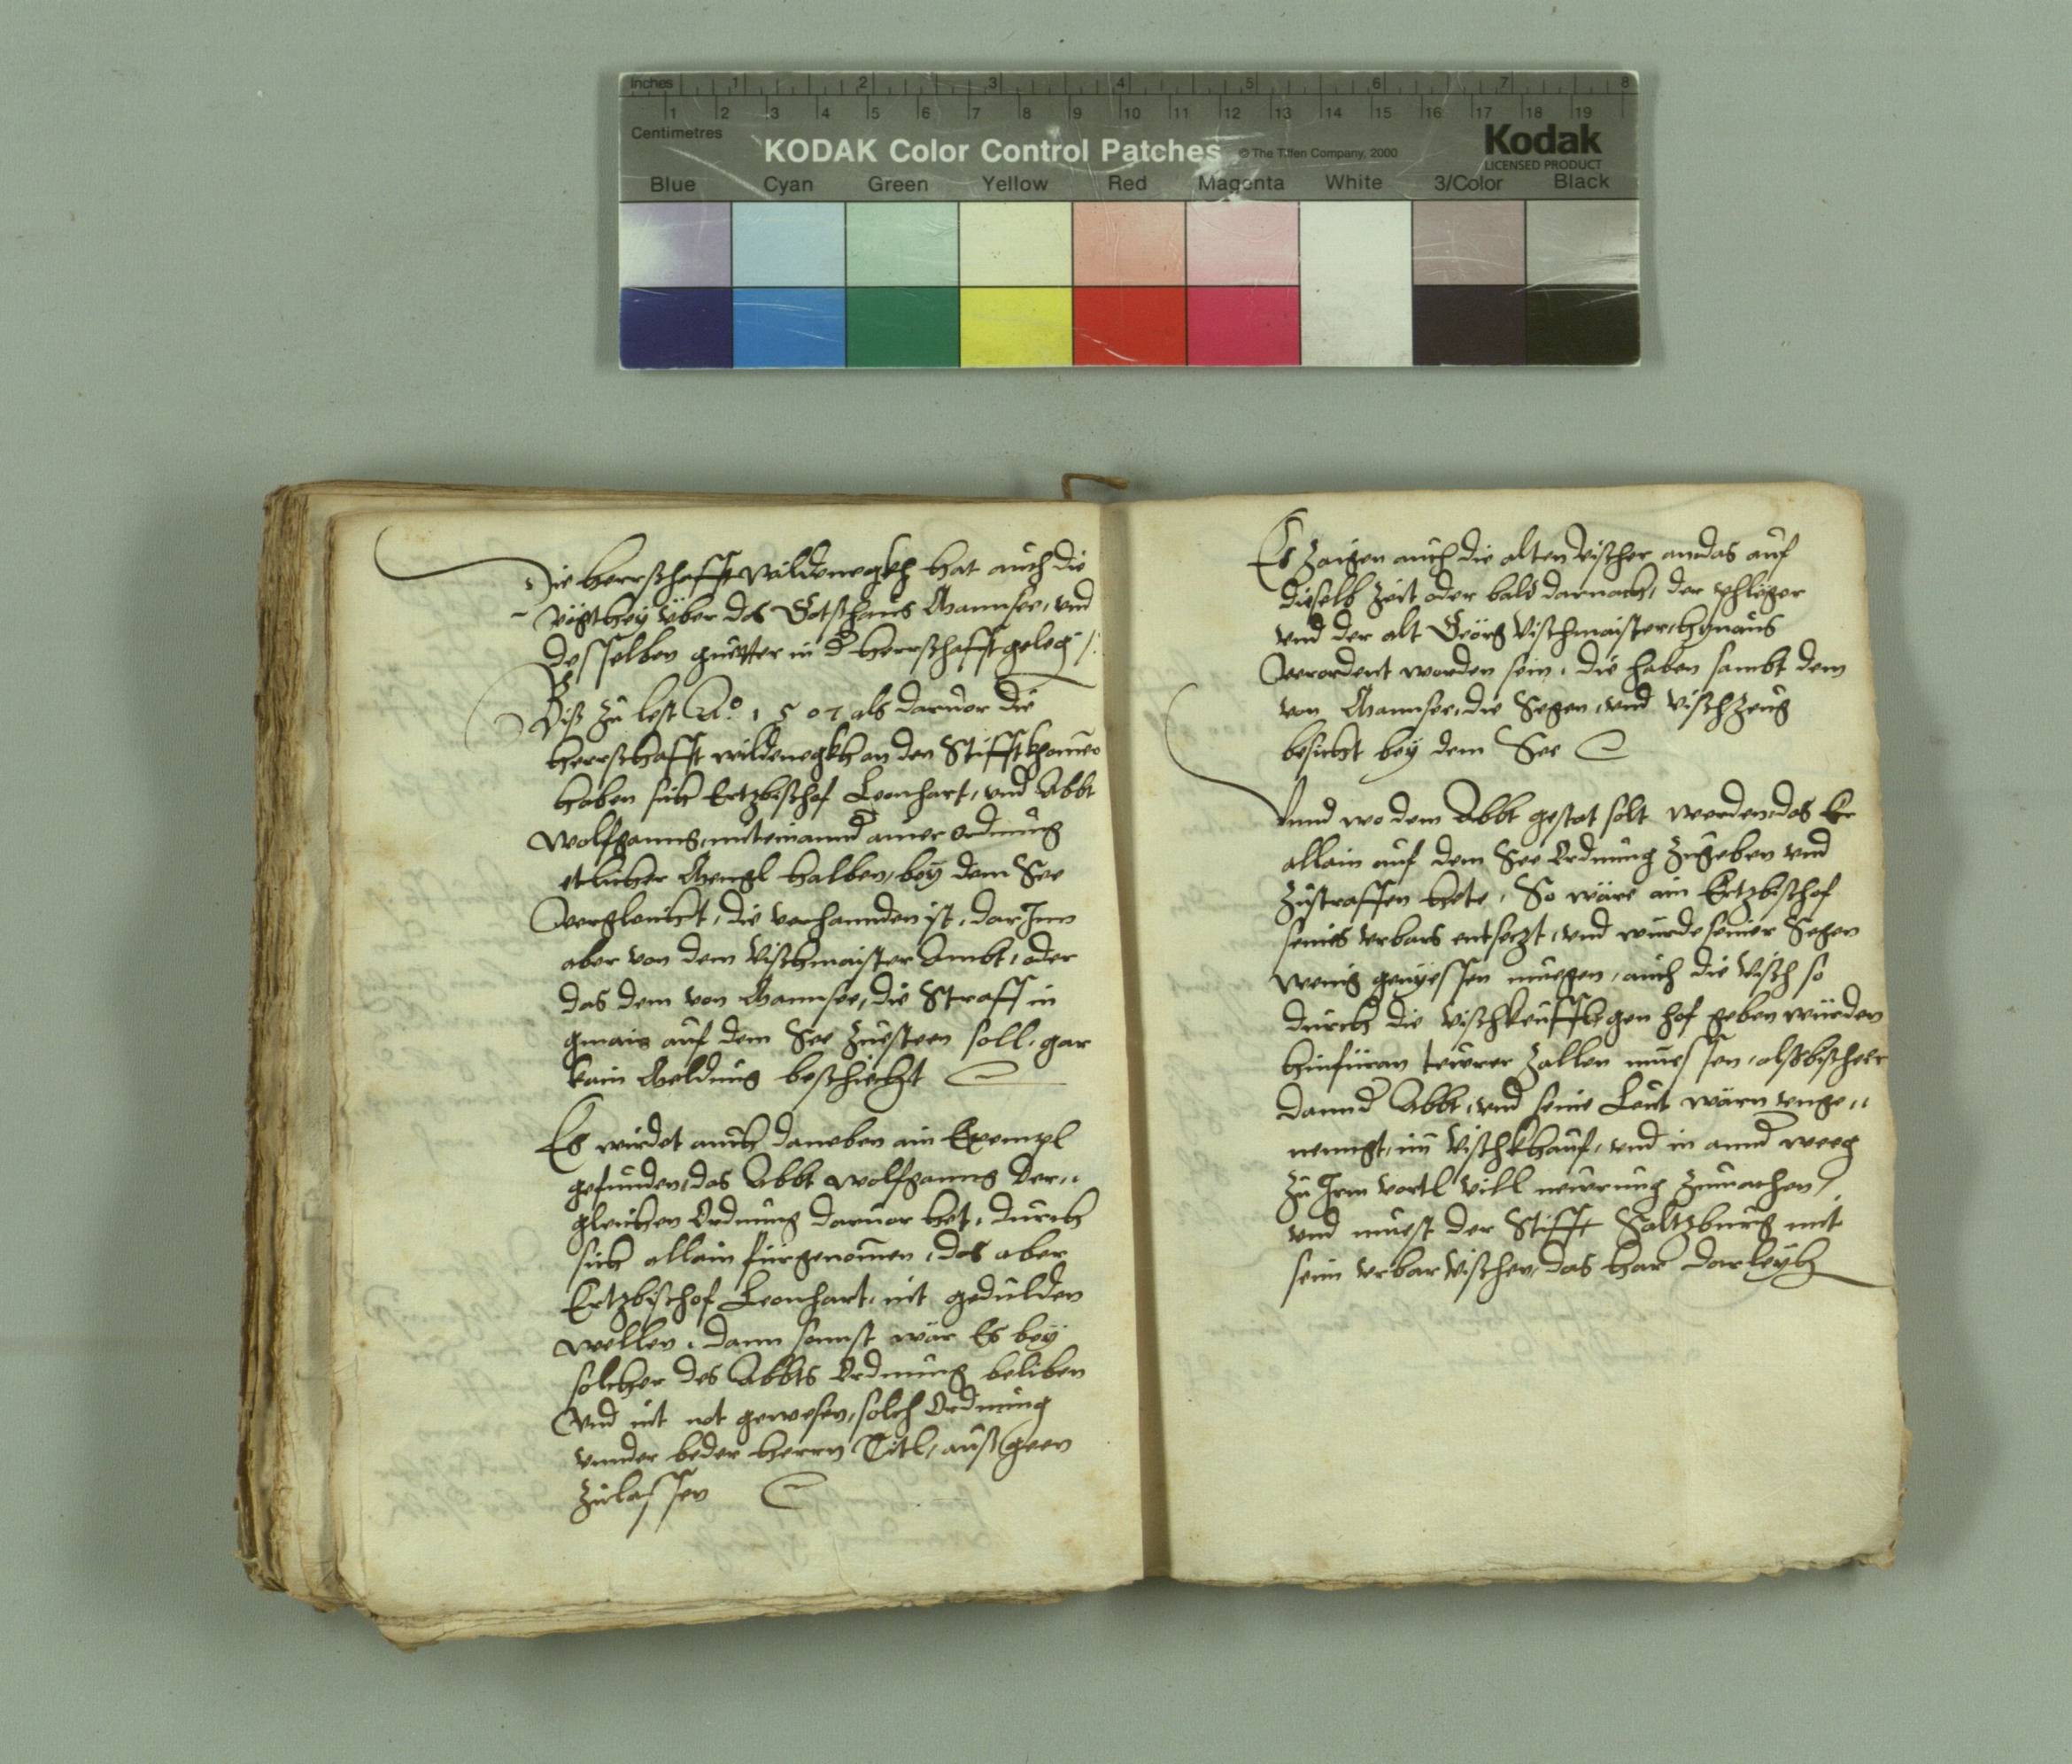 Inches 1 2 3 4 5 6 7 8
1 2 3 4 5 6 7 8 9 10 11 12 13 14 15 16 17 18 19
Centimetres
KODAK Color Control Patches © The Tiffen Company, 2000
Kodak
LICENSED PRODUCT
Blue Cyan Green Yellow Red Magenta White 3/Color Black
Die Herrschafft Wildenegkh hat auch die
Vogthey über das Gotzhaus Mannsee, vnd
desselben guetter in d herrschafft geleg
Biß zu lest Ao. 1507 als daruor die
herrschafft wildenegkh an den Stifft khomen
haben sich Ertzbischof Leonhart, vnd Abbt
Wolfganng, miteinannd ainer ordnung
etlicher Mengl halben, bey dem See
verglaicht, die verhannden ist, darJnn
aber von dem Vischmaister Ambt, oder
das dem von Mannsee, die Straff in
gmain auf dem See Zuesteen soll, gar
kain Meldung beschiecht
Es wirdet auch daneben ain Exempl
gefunden, das Abbt Wolfganng der„
gleichen Ordnung daruor het, durch
sich allain fürgenomen, das aber
Ertzbischof Leonhart, nit gedulden
wellen, dann sonnst wär Es bey
solcher des Abbts Ordnung beliben
Vnd nit not gewesen, solch Ordnung
vnnder beder herrn Titl, auß geen
Zulassen
Es Zaigen auch die alten Vischer an, das auf
dieselb Zeit oder bald darnach, der
vnd der alt Geörg Vischmaister, hynaus
verordent worden sein, die haben sambt dem
von Mannsee, die Segen, vnd Vischzeug
besicht bey dem See
Vnnd wo dem Abbt gestat solt werden, das Er
allain auf dem See Ordnung Zugeben vnd
Zustraffen hete, So wäre ain Ertzbischof
seines vrbars entsetzt, vnd wurde seiner Segen
wenig genyessen muegen, auch die Visch so
durch die Vischkeuffl gen hof geben würden
hinfüran teurer Zallen muessen, als bisheer
dannd Abbt, vnd seine Leut wärn vnge„
nennigt, im Vischkhauf, vnd in annd weeg
Zu Jrm Vortl vill neurung Zumachen,
vnd muest der Stifft Saltzburg mit
sein vrbar Vischen, das har darleych